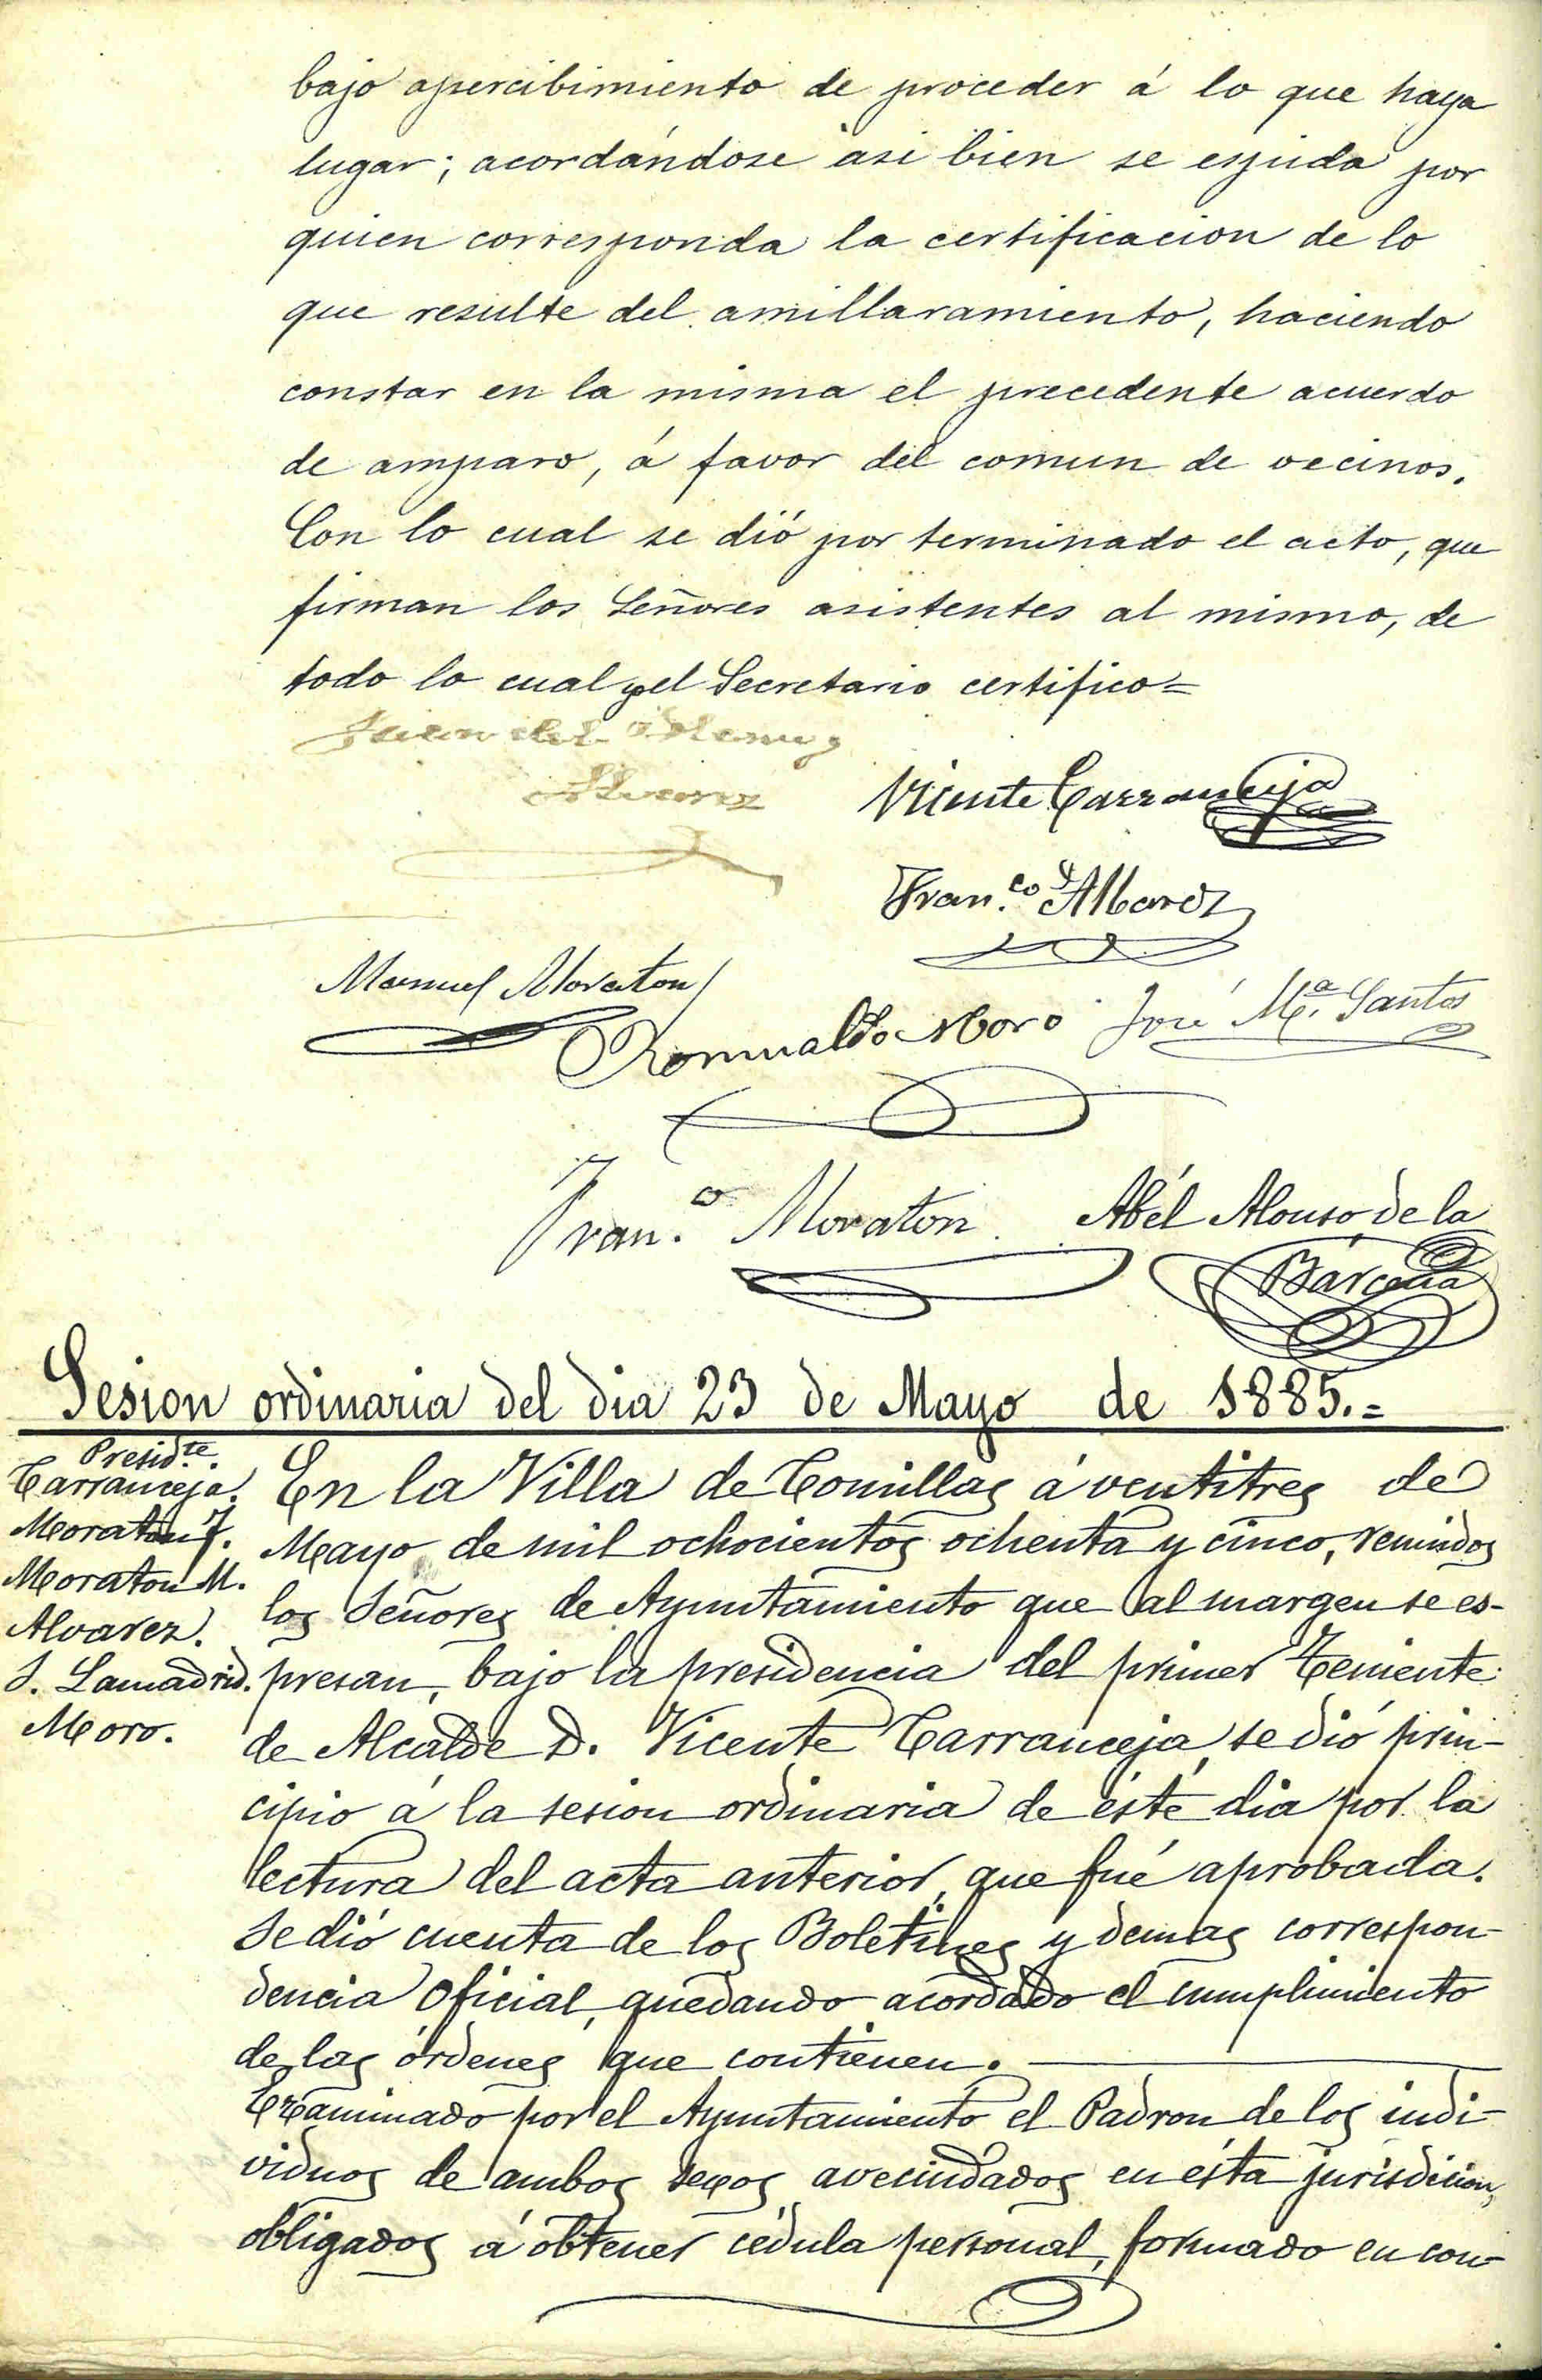 bajo apercibimiento de proceder á lo que haya
lugar; acordándose asi bien se espida por
quien corresponda la certificacion de lo
que resulte del amillaramiento, haciendo
constar en la misma el precedente acuerdo
de amparo, á favor del comun de vecinos.
Con lo cual se dió por terminado el acto, que
firman los Señores asistentes al mismo, de
todo lo cual yo el Secretario certifico=
Vicente Carranceja
Fran.co Albarez
Manuel Moraton
Romualdo Moro José M.a Santos
Fran.co Moraton Abél Alonso de la
Bárcena
Sesion ordinaria del dia 23 de Mayo de 1885.=
Presid.te
Carranceja.
Moraton F.
Moraton M.
Alvarez.
S. Lamadrid.
Moro.
En la Villa de Comillas á ventitres de
Mayo de mil ochocientos ochenta y cinco, reunidos
los Señores de Ayuntamiento que al margen se es-
presan, bajo la presidencia del primer Teniente
de Alcalde D. Vicente Carranceja, se dió prin-
cipio á la sesion ordinaria de éste dia por la
lectura del acta anterior, que fué aprobada.
Se dió cuenta de los Boletines y demas correspon-
dencia oficial, quedando acordado el cumplimiento
de las órdenes que contienen.
Examinado por el Ayuntamiento el Padron de los indi-
viduos de ambos sexos avecindados en ésta jurisdicion,
obligados á obtener cédula personal, formado en con-